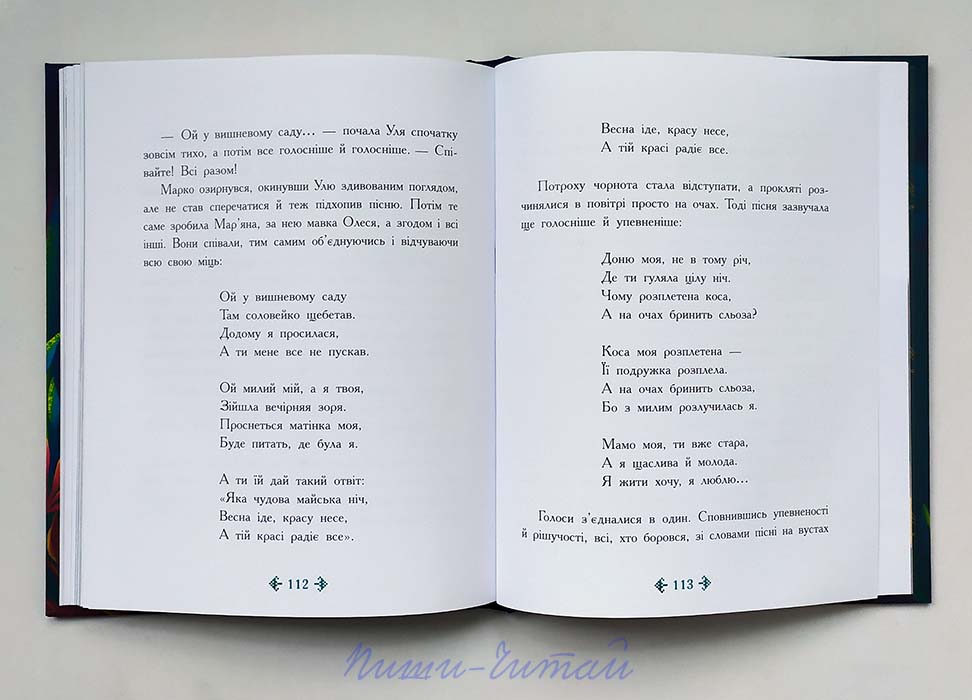 — Ой у вишневому саду... — почала Уля спочатку
зовсім тихо, а потім все голосніше й голосніше. — Спі-
вайте! Всі разом!
Марко озирнувся, окинувши Улю здивованим поглядом,
але не став сперечатися й теж підхопив пісню. Потім те
саме зробила Мар’яна, за нею мавка Олеся, а згодом і всі
інші. Вони співали, тим самим об’єднуючись і відчуваючи
всю свою міць:
Ой у вишневому саду
Там соловейко щебетав.
Додому я просилася,
А ти мене все не пускав.
Ой милий мій, а я твоя,
Зійшла вечірняя зоря.
Проснеться матінка моя,
Буде питать, де була я.
А ти їй дай такий отвіт:
«Яка чудова майська ніч,
Весна іде, красу несе,
А тій красі радіє все».
112
Весна іде, красу несе,
А тій красі радіє все.
Потроху чорнота стала відступати, а прокляті роз-
чинялися в повітрі просто на очах. Тоді пісня зазвучала
ще голосніше й упевненіше:
Доню моя, не в тому річ,
Де ти гуляла цілу ніч.
Чому розплетена коса,
А на очах бринить сльоза?
Коса моя розплетена —
Її подружка розплела.
А на очах бринить сльоза,
Бо з милим розлучилась я.
Мамо моя, ти вже стара,
А я щаслива й молода.
Я жити хочу, я люблю...
Голоси з’єдналися в один. Сповнившись упевненості
й рішучості, всі, хто боровся, зі словами пісні на вустах
113
Пиши-Читай